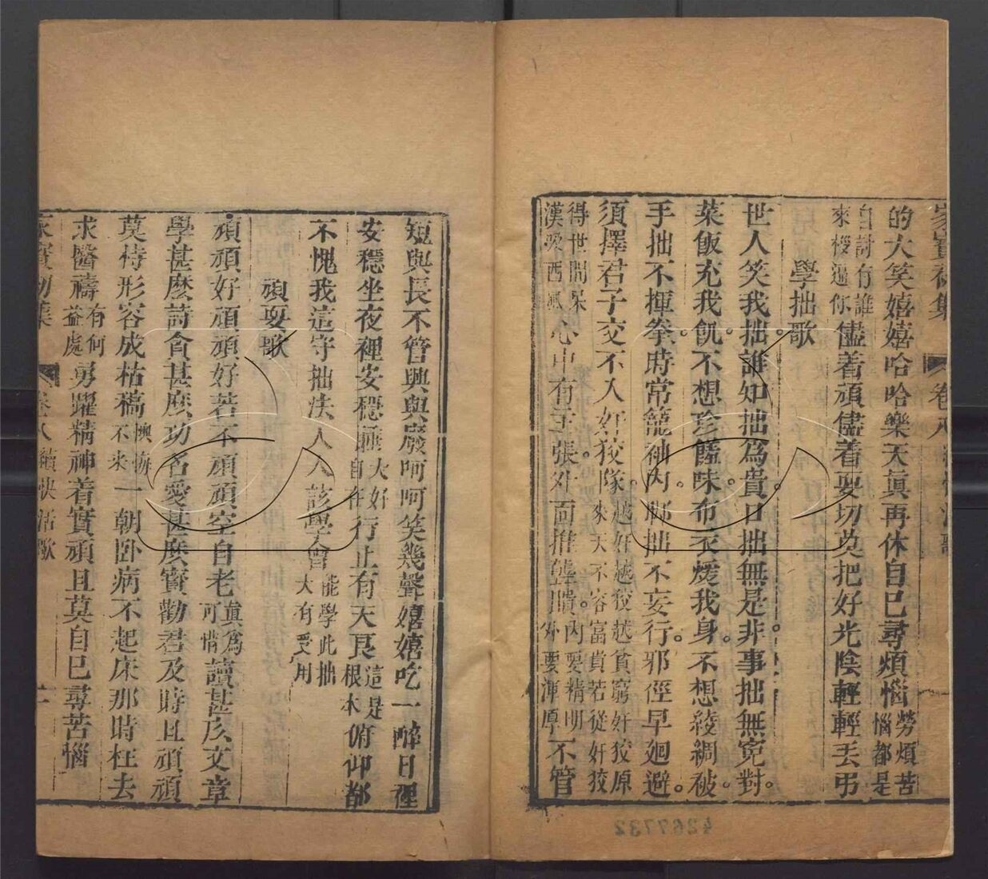 的大笑嬉嬉哈哈樂天真再休自己尋煩惱勞煩苦惱都是
自討有誰來侵逼你儘着頑儘着耍切莫把好光陰輕輕丟弔
學拙歌
世人笑我拙誰知拙為貴口拙無是非事拙無寃對
菜飯充我飢不想珍饈味布衣煖我身不想綾綢被
手拙不揮拳時常籠袖內脚拙不妄行邪徑早廻避
須擇君子交不入奸狡隊越奸越狡越貧窮奸狡原來天不容富貴若從奸狡
得世間呆漢吸西風心中有主張外面推聾聵內要精明外要渾厚不管
短與長不管興與廢呵呵笑幾聲嬉嬉吃一醉日裡
安穩坐夜裡安穩睡大好自在行止有天良這是根本俯仰都
不愧我這守拙法人人該學會能學此拙大有受用
頑耍歌
頑頑好頑頑好若不頑頑空自老真為可惜讀甚庅文章
學甚麽詩貪甚庅功名愛甚庅寳勸君及時且頑頑
莫待形容成枯稿懊悔不來一朝卧病不起床那時枉去
求醫禱有何益處勇躍精神着實頑且莫自己尋苦惱
4267732